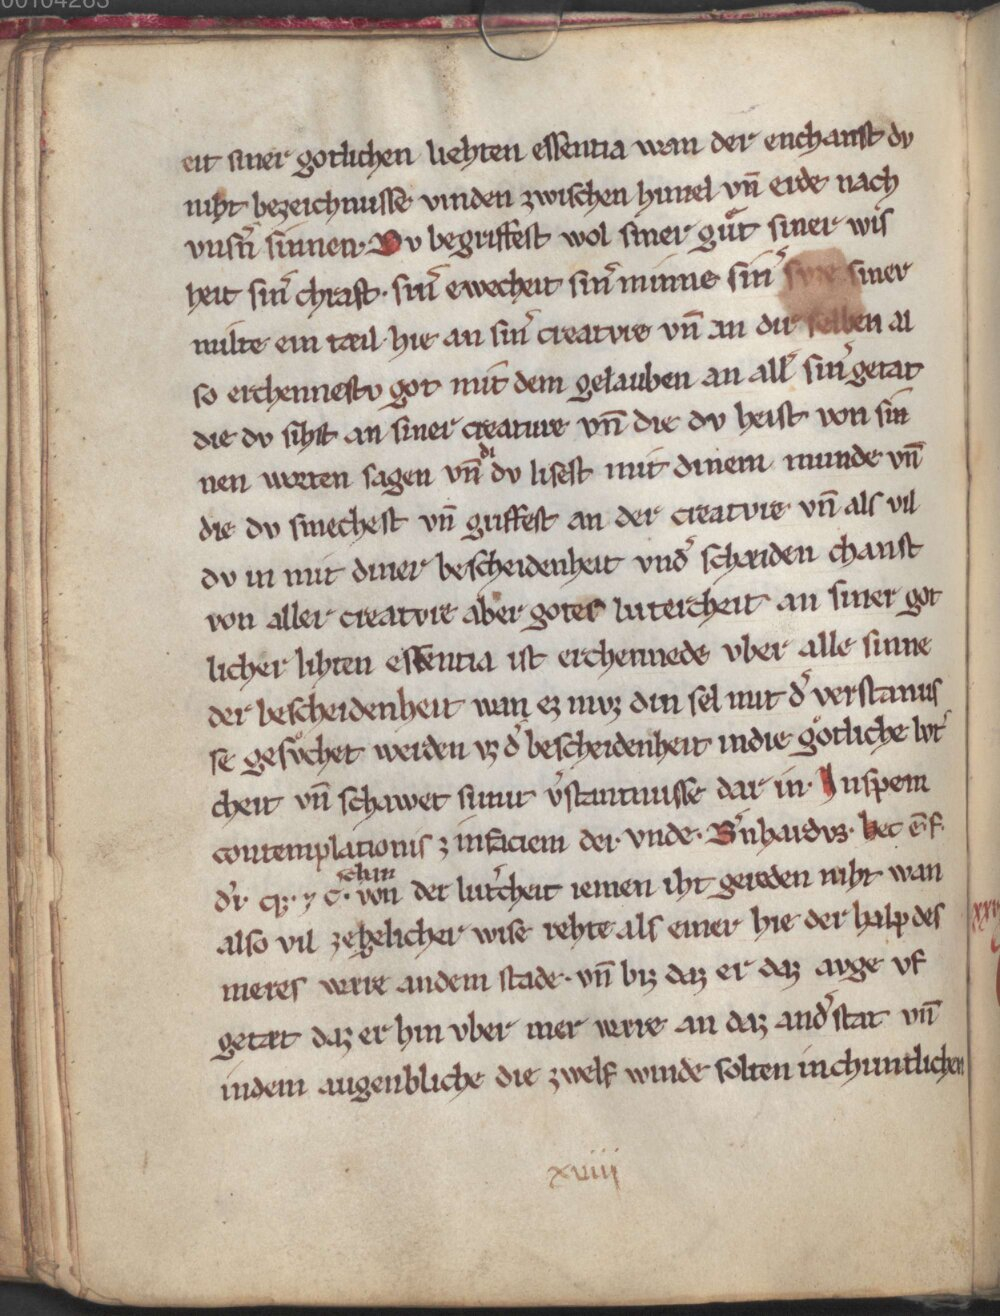 eit siner gotlichen liehten essentia wan der enchanst dv
niht bezeichnusse vinden zwischen himel vn̄ erde nach
vnsn̄ sinnen. Dv begriffest wol siner gůt siner wis
heit sin̾ chraft. sin̾ ewecheit sin̾ minne sin̾ siner
milte ein tæil hie an sin̾ creatvre vn̄ an dir selben al
so erchennestv got mit dem gelauben an all̾ sin̾ getat
die dv sihst an siner creature vn̄ die dv heist von sin
nen worten sagen vn̄ di dv lisest mit dinem munde vn̄
die dv smechest vn̄ griffest an der creatvre vn̄ als vil
dv in mit diner bescheidenheit vnd̾ schæiden chanst
von aller creatvre aber gotes lutercheit an siner got
licher lihten essentia ist erchennede vber alle sinne
der bescheidenheit wan ez mvz din sel mit d̾ verstantnus
se gesůchet werden vz d̾ bescheidenheit in die gǒtliche lvt̾
cheit vn̄ schawet sunit v̾stantnusse dar in. In spem
contemplationis ⁊ in faciem der vnde. B̾nhardvs. hec ē f.
d̾r. cp. y c. von der lut̾cheit iemen iht gereden niht wan
also vil zegelicher wise rehte als einer hie der halp des
meres wære an dem stade. vn̄ biz daz er daz avge vf
getæt daz er hin vber mer wære an daz and̾ stat vn̄
in dem augenbliche die zwelf winde solten in chuntlichen
xviiii